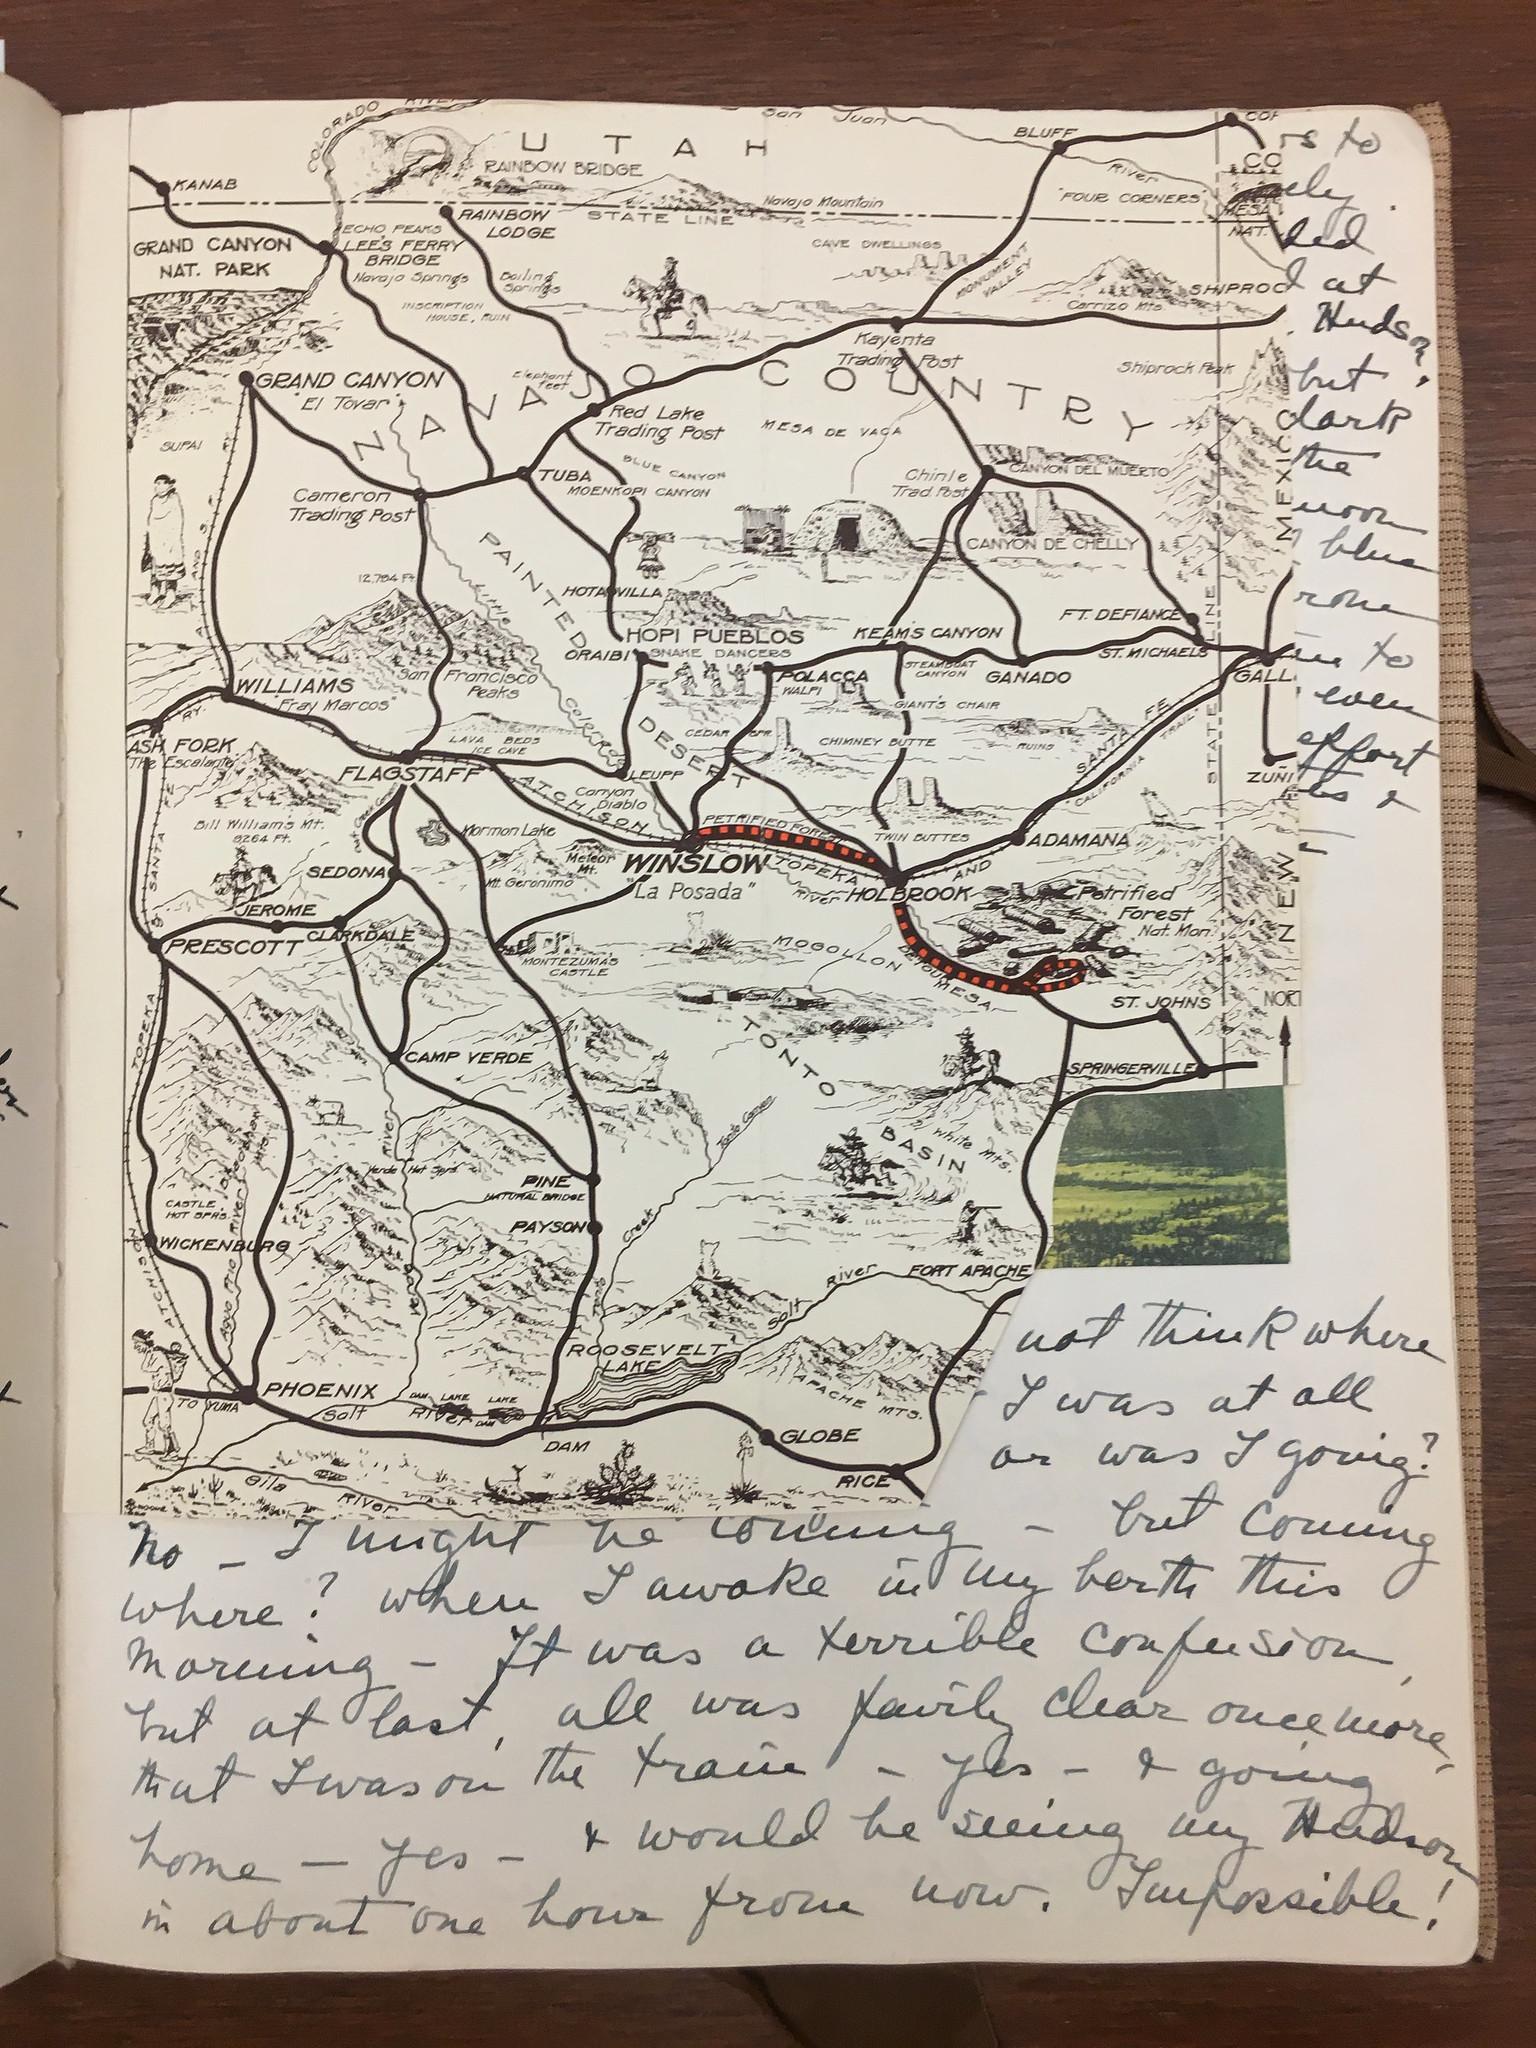 COLORADO RIVER
San Juan
BLUFF
UTAH
RAINBOW BRIDGE
River
KANAB
"FOUR CORNERS"
Navajo Mountain
STATE LINE
RAINBOW
LODGE
MESA
NAT.
GRAND CANYON
NAT. PARK
ECHO PEAKS
LEE'S FERRY
BRIDGE
Navajo Springs
Boiling
Springs
CAVE DWELLINGS
MONUMENT
VALLEY
INSCRIPTION
HOUSE, RUIN
Carrizo Mts.
SHIPROC
Kayenta
Trading Post
Shiprock Peak
GRAND CANYON
"El Tovar"
Elephant
feet
NAVAJO COUNTRY
Red Lake
Trading Post
MESA DE VACA
SUPAI
BLUE CANYON
TUBA
MOENKOPI CANYON
Chinle
Trad. Post
CANYON DEL MUERTO
Cameron
Trading Post
CANYON DE CHELLY
PAINTED DESERT
Little
Colorado
12,794 Ft.
HOTAVILLA
FT. DEFIANCE
HOPI PUEBLOS
SNAKE DANCERS
ORAIBI
KEAM'S CANYON
STEAMBOAT
CANYON
ST. MICHAELS
GALL
POLACCA
WALPI
GANADO
San Francisco
Peaks
WILLIAMS
"Fray Marcos"
GIANT'S CHAIR
CEDAR SPR.
CHIMNEY BUTTE
RUINS
SANTA FE
"CALIFORNIA TRAIL"
STATE LINE
NEW MEXICO
ZUNI
RY.
ASH FORK
The Escalante
LAVA BEDS
ICE CAVE
FLAGSTAFF
LEUPP
Canyon
Diablo
ATCHISON
TOPEKA
AND
Bill Williams Mt.
9264 Ft.
Oak Creek Canyon
Mormon Lake
Meteor
Mt.
Mt. Geronimo
PETRIFIED FOREST
TWIN BUTTES
ADAMANA
WINSLOW
"La Posada"
River
HOLBROOK
SEDONA
JEROME
CLARKDALE
PRESCOTT
MONTEZUMA'S
CASTLE
MOGOLLON MESA
DETOUR
Petrified
Forest
Nat. Mon.
ST. JOHNS
NORT
SANTA FE
TOPEKA
ATCHISON
CAMP VERDE
TONTO BASIN
SPRINGERVILLE
White Mts.
Tonto Canyon
Verde Hot Sprs.
Verde River
PINE
NATURAL BRIDGE
PAYSON
Creek
CASTLE
HOT SPRS.
WICKENBURG
Agua Frio River
Salt River
FORT APACHE
ROOSEVELT
LAKE
APACHE MTS.
PHOENIX
TO YUMA
Salt River
DAM LAKE
LAKE DAM
DAM
GLOBE
RICE
Gila River
rs to
ely.
ded
at
Hudson,
but
dark
the
moon
blue
rone
to
even
effort
not think where
I was at all
or was I going?
no – I might be coming – but coming
where? when I awoke in my berth this
morning – It was a terrible confusion,
but at last, all was fairly clear once more,
that I was on the train – yes – & going
home – yes – & would be seeing my Hudson
in about one hour from now. Impossible!